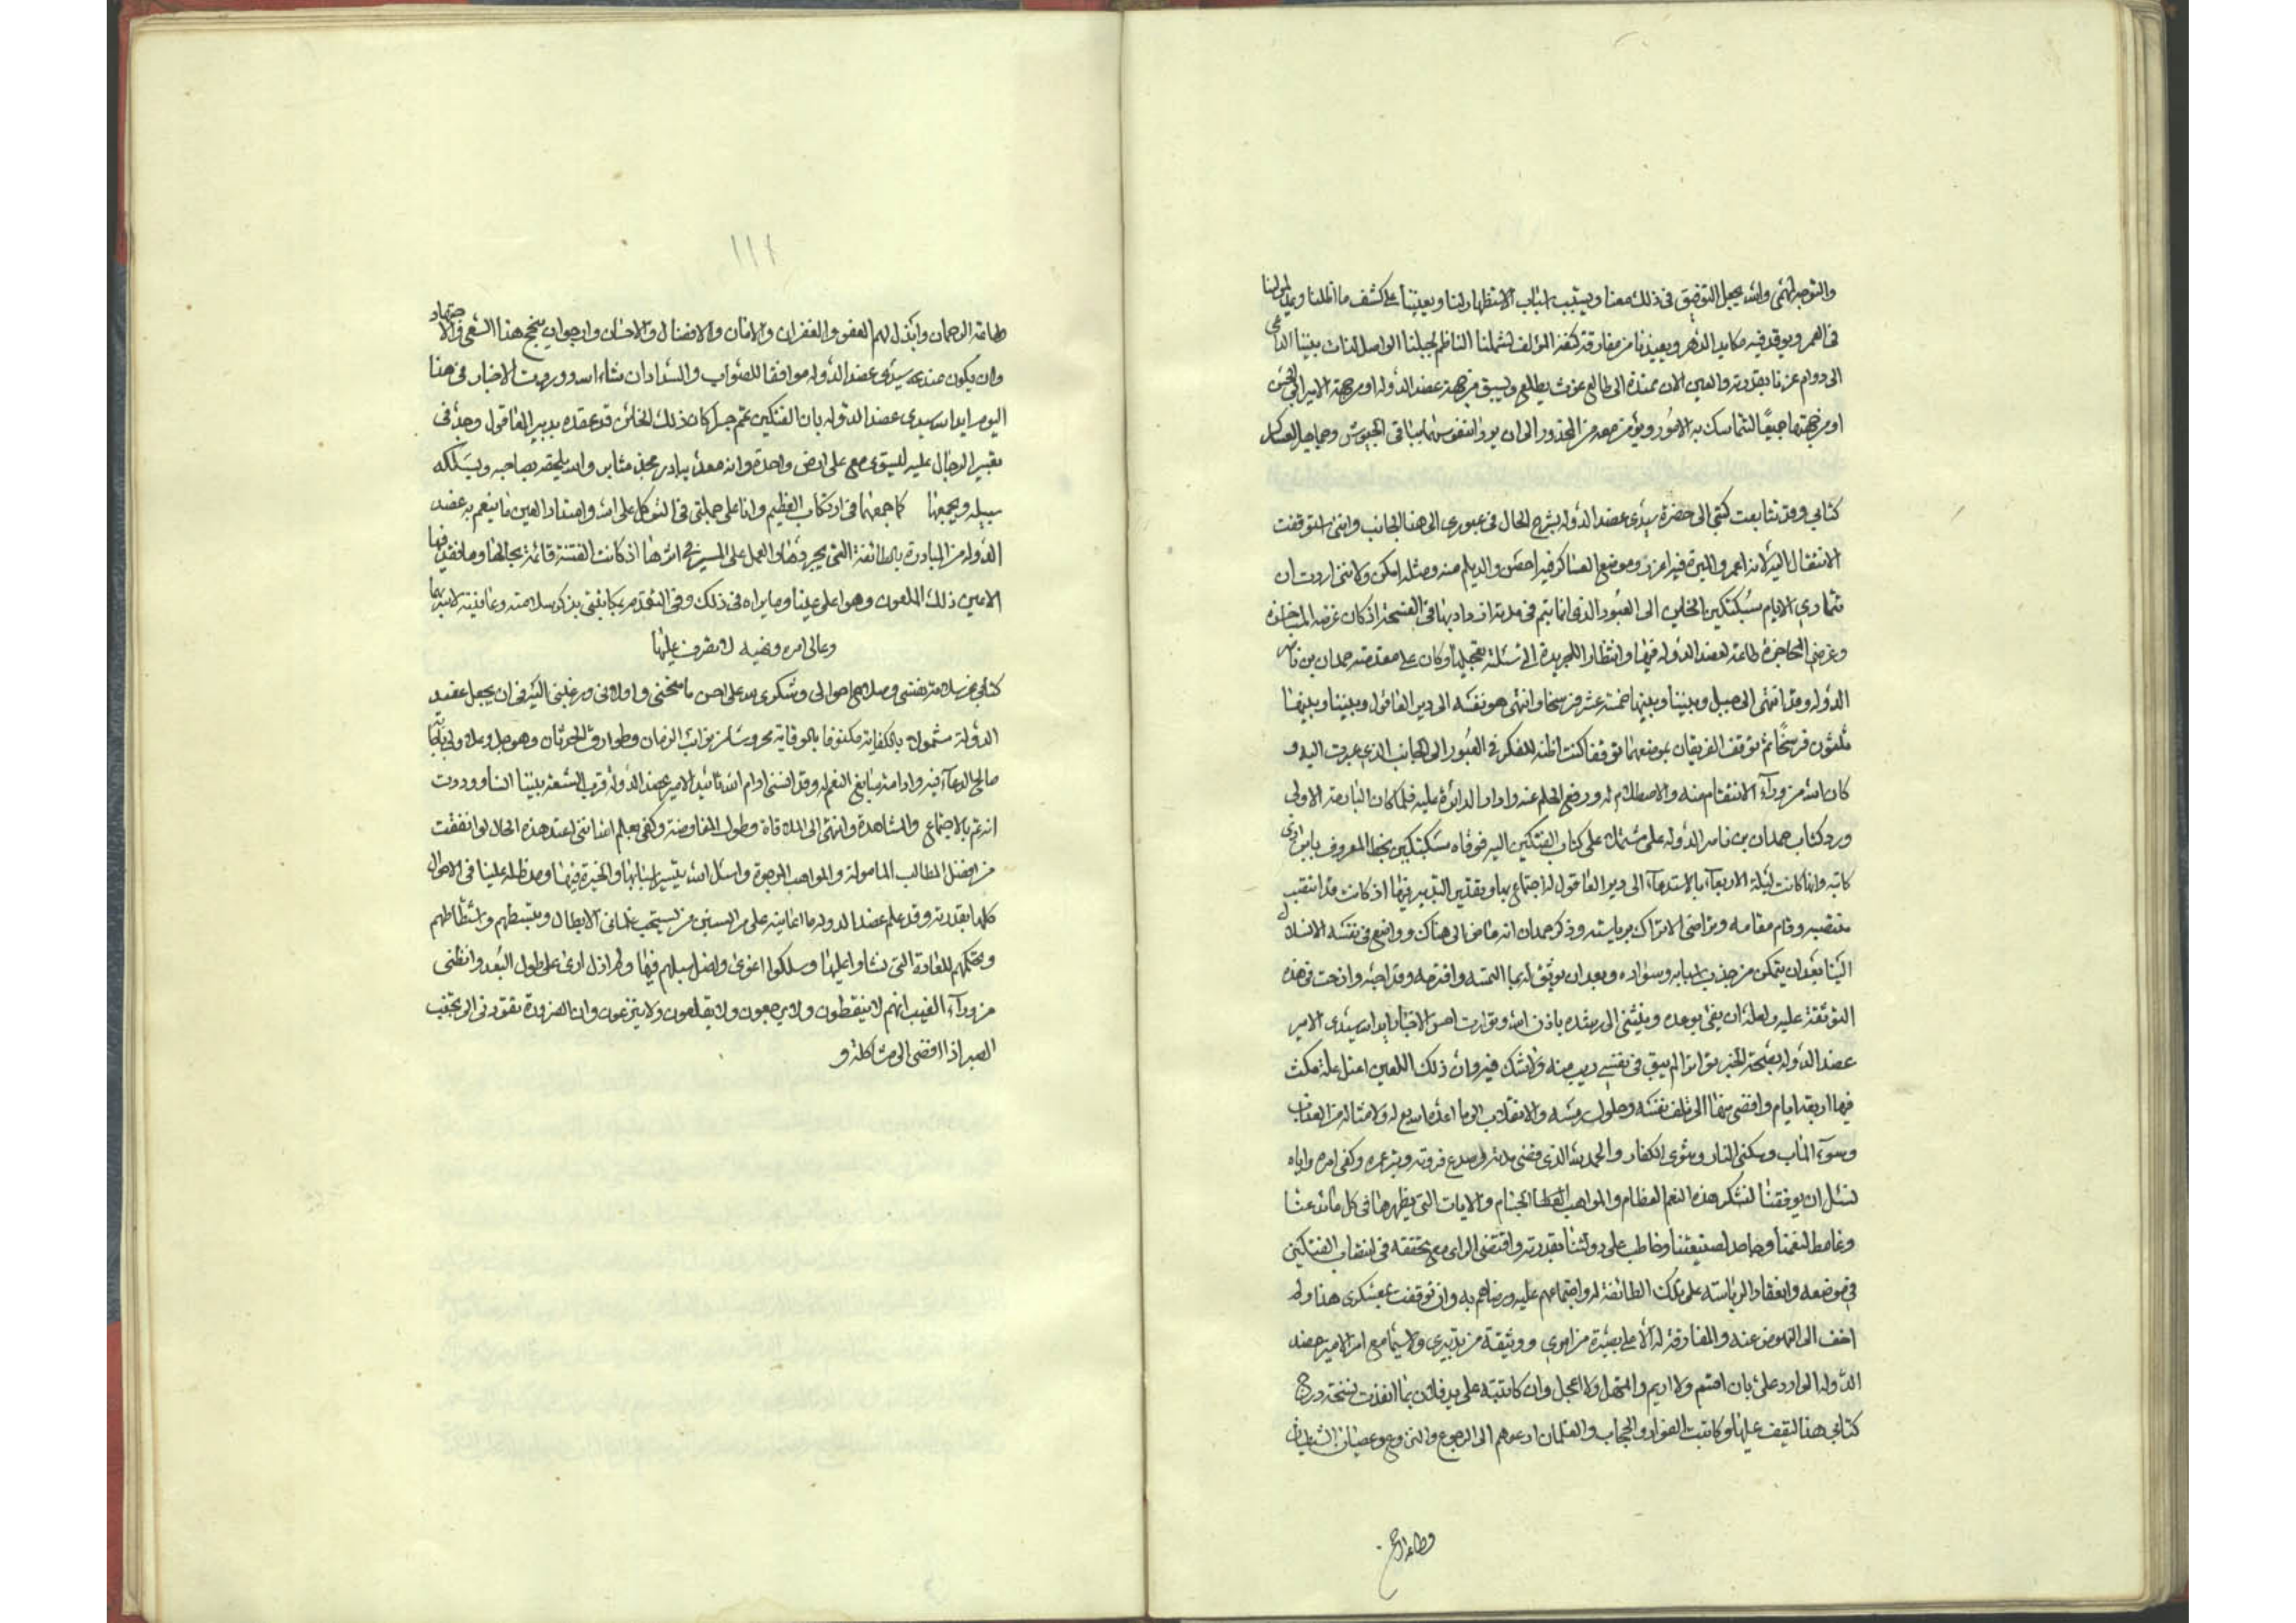 والتوجه لهمتي والله يجعل التوفيق في ذلك معنا ويسبب اسباب الاستظهار لنا ويعيننا على كشف ما اظلنا ويمد لمولانا
في العمر ويوقد فيه مكايد الدهر ويعيذنا من مفارقة كنفه المؤلف لشملنا الناظم لحبلنا الواصل لذات بيننا الداعي
الى دوام عزنا بقدرته والعين الان ممتدة الى طالع غوث يطلع ويسبق من جهة عضد الدوله او من جهة الامير ابي الحسن
او من جهتهما جميعًا لتتماسك به الامور ويؤمن معه من المحذور الى ان يورد النفوس بباقي الجيوش وجماهير العساكر
كتابي وقد تتابعت كتبي الى حضرة سيدي عضد الدوله بشرح الحال في عبوري الى هذا الجانب وانني استوقفت
الانتقال اليه لانه اعمر والميرة فيه اغزر وموضع العساكر فيه احصن والديلم منه ومثله امكن ولانني اردت ان
تتمادى الايام بسبكتكين الخائن الى العبور الذي انما يتم في مدة ازداد بها في الفسحة اذ كان غرضه المناجزة
وغرضي المحاجزة طاعة لعضد الدوله فيها وانتظارا للجريدة التي سئلته تعجيلها وكان على مقدمته حمدان بن ناصر
الدوله وقد انتهى الى جبل وبيننا وبينها خمسة عشر فرسخا وانتهى هو نفسه الى دير العاقول وبيننا وبينها
ثلثون فرسخًا ثم توقف الفريقان بموضعهما توقفا كنت اظنه للفكر في العبور الى الجانب الذي عبرت اليه و
كان لله من ورآء الانتقام منه والاصطلام له ورفع الحلم عنه وادار الدائرة عليه فلما كان البارحة الاولى
ورد كتاب حمدان بن ناصر الدوله على مشتملا على كتاب الفتكين اليه فوفاه سبكتكين بخط المعروف بابن
كاتبه وانها كانت ليلة الاربعآء بالاستدعآء الى دير العاقول لاجتماع بها وتقدير التدبير فيها اذ كانت قد انتقب
منتقبه وقام مقامه وتراضى الاتراك برياسته وذكر حمدان انه ماض الى هناك وواضع في نفسه الانسلال
الينا بعد ان يتمكن من جذب اسبابه وسواده وبعد ان يوثق له بما التمسه واقترحه وقد اجبه وازحت في هذه
التوثقة عليه ولعله ان يفي بوعده وينثني الى رشده باذن الله وتواترت امس الاخبار ايد الله سيدي الامير
عضد الدوله بصحة الخبر تواترا لم يبق في نفسي ريب منه ولا شك فيه وان ذلك اللعين اعتل علة مكث
فيها اربعة ايام وافضى منها الى تلف نفسه وحلول رمسه والانقلاب الى ما اعده الله له ولامثاله من العذاب
وسوء المآب وسكنى النار ومثوى الكفار والحمد لله الذي قضى مدته وصدع فروته وبتر عمره وكفى امره واياه
نسئل ان يوفقنا لشكر هذه النعم العظام والمواهب الجسام والايات التي يظهرها في كل مائد عنا
وغامط لنعمتنا وجاحد لصنيعتنا وخاطب على دولتنا بقدرته واقتضى الراي مع تحققه في انتصاب الفتكين
في موضعه وانعقاد الرياسة على تلك الطائفة له واجتماعهم عليه ورضاهم به وان توقفت بعسكري هذا ولم
اخف الى النهوض عنه والمفارقة له الا على بصيرة من امري ووثيقة من تدبيري ولا سيما مع امر الامير عضد
الدوله الوارد على بان اقيم ولا اريم واتمهل ولا اعجل وان كاتبته على يد فلان بما انفذت نسخته درج
كتابي هذا ليقف عليها وكاتبت القواد والحجاب والغلمان ادعوهم الى الرجوع والنزوع وعصيان الشيطان
وطاعة الر
١١١
طاعة الرحمان وابذل لهم العفو والغفران والامان والافضال والاحسان وارجوان ينجح هذا السعي والاجتهاد
وان يكون عند سيدي عضد الدوله موافقا للصواب والسداد ان شاء الله ووردت الاخبار في هذا
اليوم ايد الله سيدي عضد الدوله بان الفتكين تمم جسرا كان ذلك الخائن قد عقده بدير العاقول وجد في
تعبير الرجال عليه ليستوي معي على ارض واحدة وانه معد مبادر مجد مثابر والله يلحقه بصاحبه ويسلكه
سبيله ويجمعهما كما جمعهما في ارتكاب العظيم وانا على جملتي في التوكل على الله وامتداد العين ما ينعم به عضد
الدوله من المبادرة بالطائفة التي يجردها والعمل على المسير في اثرها اذ كانت الفتنة قائمة بحالها وما فقد فيها
الا عين ذلك الملعون وهو اعلى عينا وما يراه في ذلك وفي التقدم بمكاتبتي بذكر سلامته وعافيته لاسربها
وعالى امره ونهيه لاتصرف عليهما
كتابي عن سلامة نفسي وصلاح احوالي وشكري لله على احسن ما منحني واولاني ورغبتي اليه في ان يجعل عضد
الدولة مشمولا بالكفاية مكنوفا بالوقاية محروسا من نوائب الزمان وطوارق الحدثان وهو جل وعلا ولي باجابة
صالح الدعآء فيه وادامة سابغ النعم له وقد انسني ادام الله تائيد الامير عضد الدوله قرب الشقة بيننا انسا ووددت
انه تم بالاجتماع والمشاهدة وانتهى الى الملاقاة وطول المفاوضة وكفى بعلم الله انني اعتد هذه الحال لو اتفقت
من افضل المطالب المامولة والمواهب المرجوة واسئل الله تيسير اسبابها والخيرة فيها ومد ظله علينا في الاحوال
كلها بقدرته وقد علم عضد الدوله ما اعانيه على مر السنين من تسحب غلماني الابطال وتبسطهم واشتطاطهم
وتحكمهم للعادة التي نشاوا عليها وسلكوا اغوى واضل سبلهم فيها ولم ازل ارى على طول البعد وانظني
من ورآء الغيب انهم لا يتيقظون ولا يرجعون ولا يقلعون ولا ينزعون وان الضرورة تقودني الى تجنب
الصبر اذا افضى الى مشاكلة و